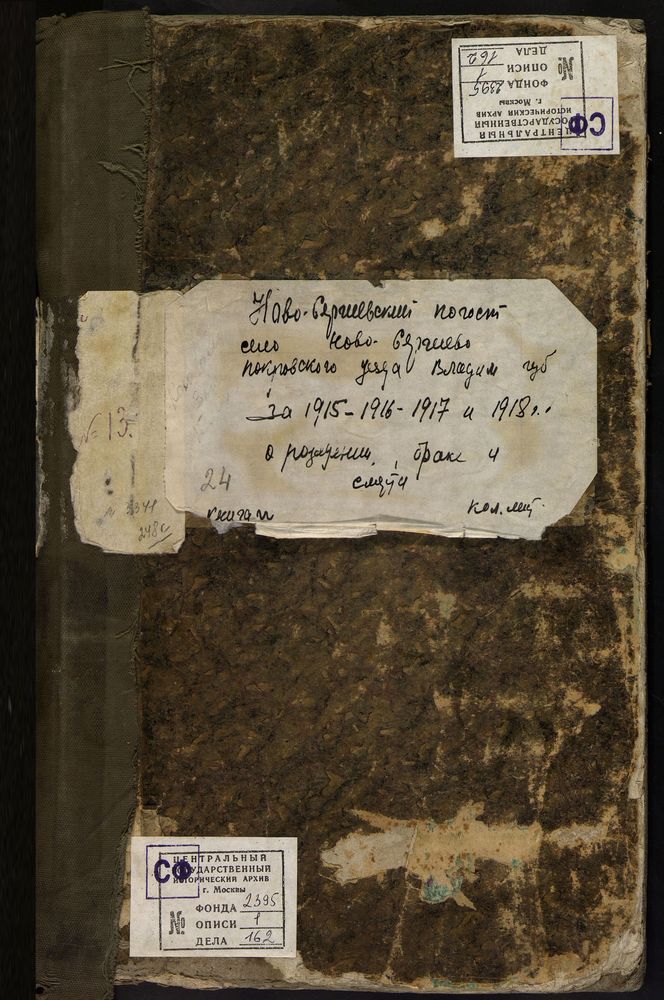 №
ДЕЛА 162
ОПИСИ 1
ФОНДА 2395
г. Москвы
ИСТОРИЧЕСКИЙ АРХИВ
ГОСУДАРСТВЕННЫЙ
ЦЕНТРАЛЬНЫЙ
СФ
Ново-Сергиевский погост
село Ново-Сергиево
Покровского уезда Владим губ
за 1915-1916-1917 и 1918 г.
о рождении, браке и
смерти
24
книга
№ 13.
СФ
ЦЕНТРАЛЬНЫЙ
ГОСУДАРСТВЕННЫЙ
ИСТОРИЧЕСКИЙ АРХИВ
г. Москвы
№
ФОНДА 2395
ОПИСИ 1
ДЕЛА 162